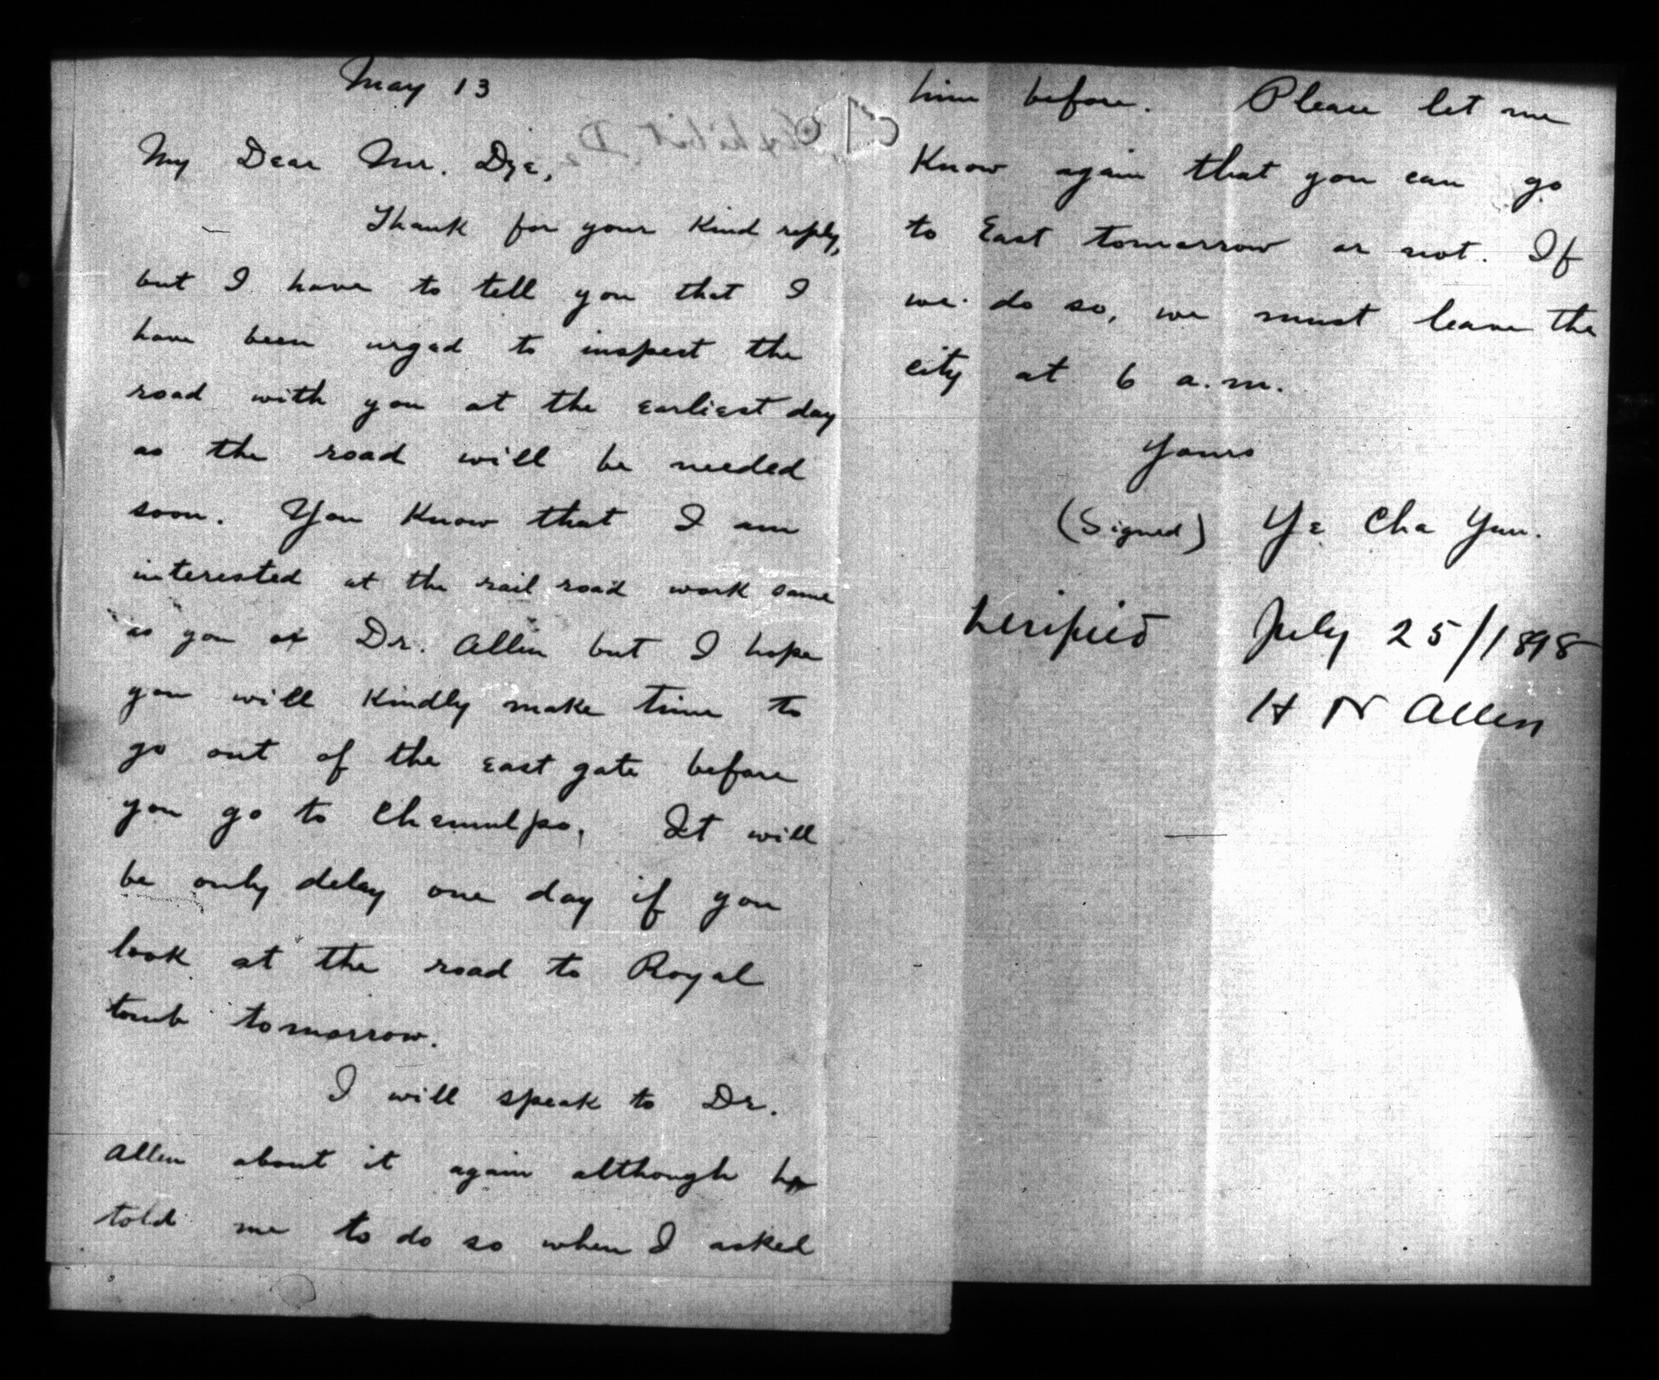 May 13
My Dear Mr. Dye,
Thank for your kind reply,
but I have to tell you that I
have been urged to inspect the
road with you at the earliest day
as the road will be needed
soon. You know that I am
interested at the rail road work same
as you or Dr. Allen but I hope
you will kindly make time to
go out of the east gate before
you go to Chemulpo. It will
be only delay one day if you
look at the road to Royal
tomb tomorrow.
I will speak to Dr.
Allen about it again although he
told me to do so when I asked
him before. Please let me
know again that you can go
to East tomorrow or not. If
we do so, we must leave the
city at 6 a.m.
Yours
(Signed) Ye Cha Yun.
Verified July 25/1898
H N Allen
Exhibit D